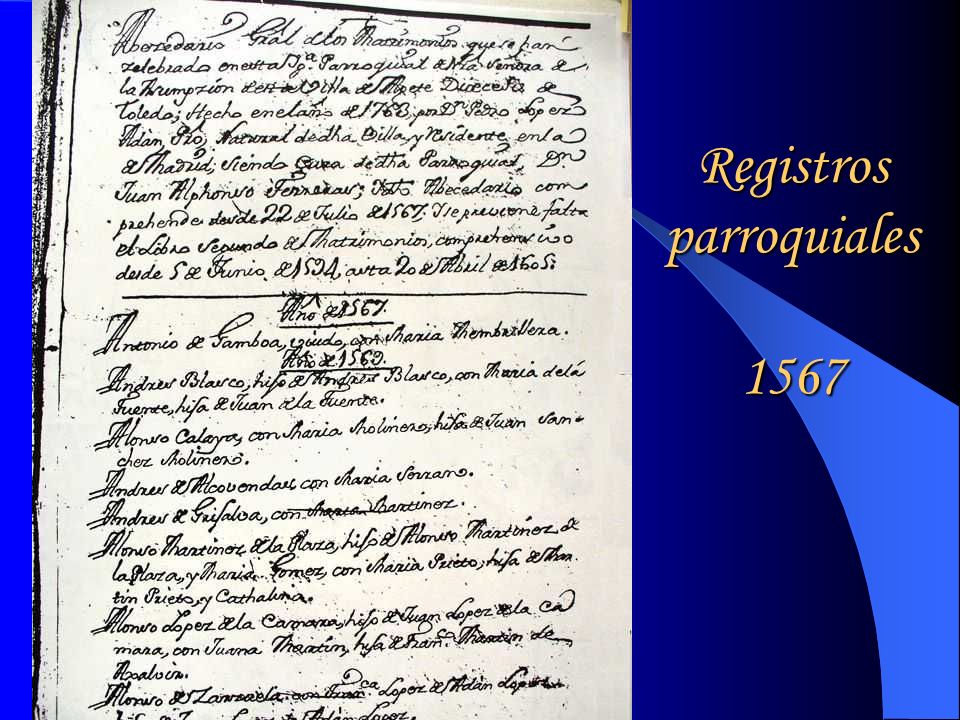 Abezedario Gral de los Matrimonios que se han
zelebrado en esta Yg.ª Parroquial de Nra Señora de
la Asumpzión de esta Villa de Algete Diocesis de
Toledo; Hecho en el año de 1763, por Dn Pedro Lopez
Adan, Pro, Natural de dha Villa, y residente en la
de Madrid; siendo Cura de dha Parroquial, Dn
Juan Alphonso Ferreras; Abecedario com
prehende desde 22 de Julio de 1567. Y se previene falta
el Libro segundo de Matrimonios, comprehensivo
desde 5 de Junio de 1594, asta 20 de Abril de 1605.
Año de 1567.
Antonio de Gamboa, con Maria Membrillera.
Año de 1569.
Andres Blasco, hijo de Andres Blasco, con Maria de la
Fuente, hija de Juan de la Fuente.
Alonso Calaya, con Maria Molinero, hija de Juan San-
chez Molinero.
Andres de Alcovendas, con Maria Serrano.
Andres de Grisalva, con Maria Martinez.
Alonso Martinez de la Plaza, hijo de Alonso Martinez de
la Plaza, y Maria Gomez, con Maria Prieto, hija de Mar
tin Prieto, y Cathalina.
Alonso Lopez de la Camara, hijo de Juan Lopez de la Ca
mara, con Juana Martin, hija de Franco Martin de
Axalvir.
Alonso de con Franca Lopez de Adan
Adan Lopez.
Registros
parroquiales
1567